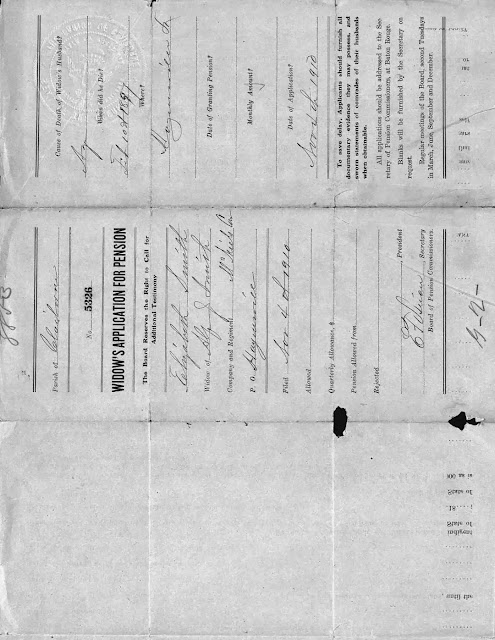 Parish of Claiborne
No. 5326
WIDOW'S APPLICATION FOR PENSION
The Board Reserves the Right to Call for
Additional Testimony
Elizabeth Smith
Widow of Smith
Company and Regiment
P. O. Haynesville
Filed Nov 4th 1910
Allowed
Quarterly Allowance, $
Pension Allowed from
Rejected
, President
, Secretary
Board of Pension Commissioners.
Cause of Death of Widow's Husband?
When did he Die?
1897
Where?
Haynesville La
Date of Granting Pension?
Monthly Amount?
Date of Application?
Nov 4th 1910
To save delay, Applicants should furnish all
documentary evidence they may possess, and
sworn statements of comrades of their husbands
when obtainable.
All applications should be addressed to the Sec-
retary of Pension Commissioners, at Baton Rouge.
Blanks will be furnished by the Secretary on
request.
Regular meetings of the Board, second Tuesdays
in March, June, September and December.